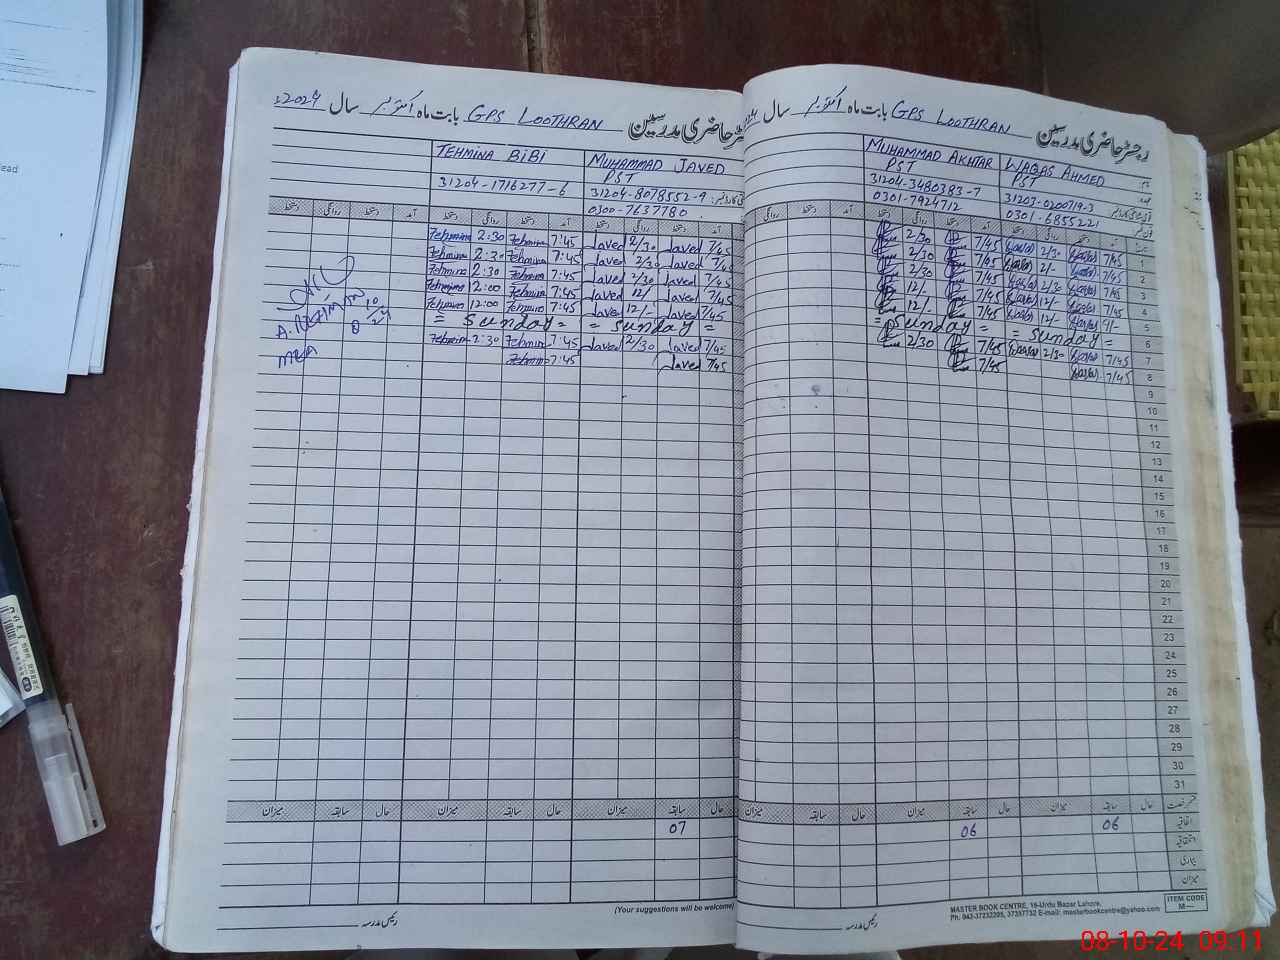 ead
2024ء سال اکتوبر بابت ماہ GPS LOOTHRAN رجسٹر حاضری مدرسین
TEHMINA BiBi MUHAMMAD JAVED
PST
31204-1716277-6 31204-8078552-9
0300-7637780
دستخط روانگی دستخط آمد دستخط روانگی دستخط آمد دستخط روانگی دستخط آمد
Tehmina 2:30 Tehmina 7:45 Javed 2/30 Javed 7/45
Tehmina 2:30 Tehmina 7:45 Javed 2/30 Javed 7/45
Tehmina 2:30 Tehmina 7:45 Javed 2/30 Javed 7/45
Tehmina 12:00 Tehmina 7:45 Javed 12/- Javed 7/45
Tehmina 12:00 Tehmina 7:45 Javed 12/- Javed 7/45
= Sunday = = Sunday =
Tehmina 2:30 Tehmina 7:45 Javed 2/30 Javed 7/45
Tehmina 7:45 Javed 7/45
MEA
میزان سابقہ حال میزان سابقہ حال میزان سابقہ حال
07
(Your suggestions will be welcome)
رئیس مدرسہ
سال اکتوبر بابت ماہ GPS LOOTHRAN رجسٹر حاضری مدرسین
MUHAMMAD AKHTAR WAQAS AHMED
PST PST
31204-3480383-7 31203-0200719-3
0301-7924712 0301-6855221
دستخط روانگی آمد دستخط روانگی دستخط آمد دستخط روانگی دستخط آمد
2/30 7/45 2/30 7/45 1
2/30 7/45 2/- 7/45 2
2/30 7/45 2/30 7/45 3
12/- 7/45 12/- 7/45 4
12/- 7/45 12/- 5
= Sunday = = Sunday = 6
2/30 7/45 2/30 7/45 7
7/45 7/45 8
9
10
11
12
13
14
15
16
17
18
19
20
21
22
23
24
25
26
27
28
29
30
31
میزان سابقہ حال میزان سابقہ حال میزان سابقہ حال قسم رخصت
06 06 اتفاقیہ
استحقاقیہ
بیماری
میزان
MASTER BOOK CENTRE, 16-Urdu Bazar Lahore,
Ph. 042-37232205, 37357732 E-mail: masterbookcentre@yahoo.com
ITEM CODE
M—
رئیس مدرسہ
08-10-24 09:11